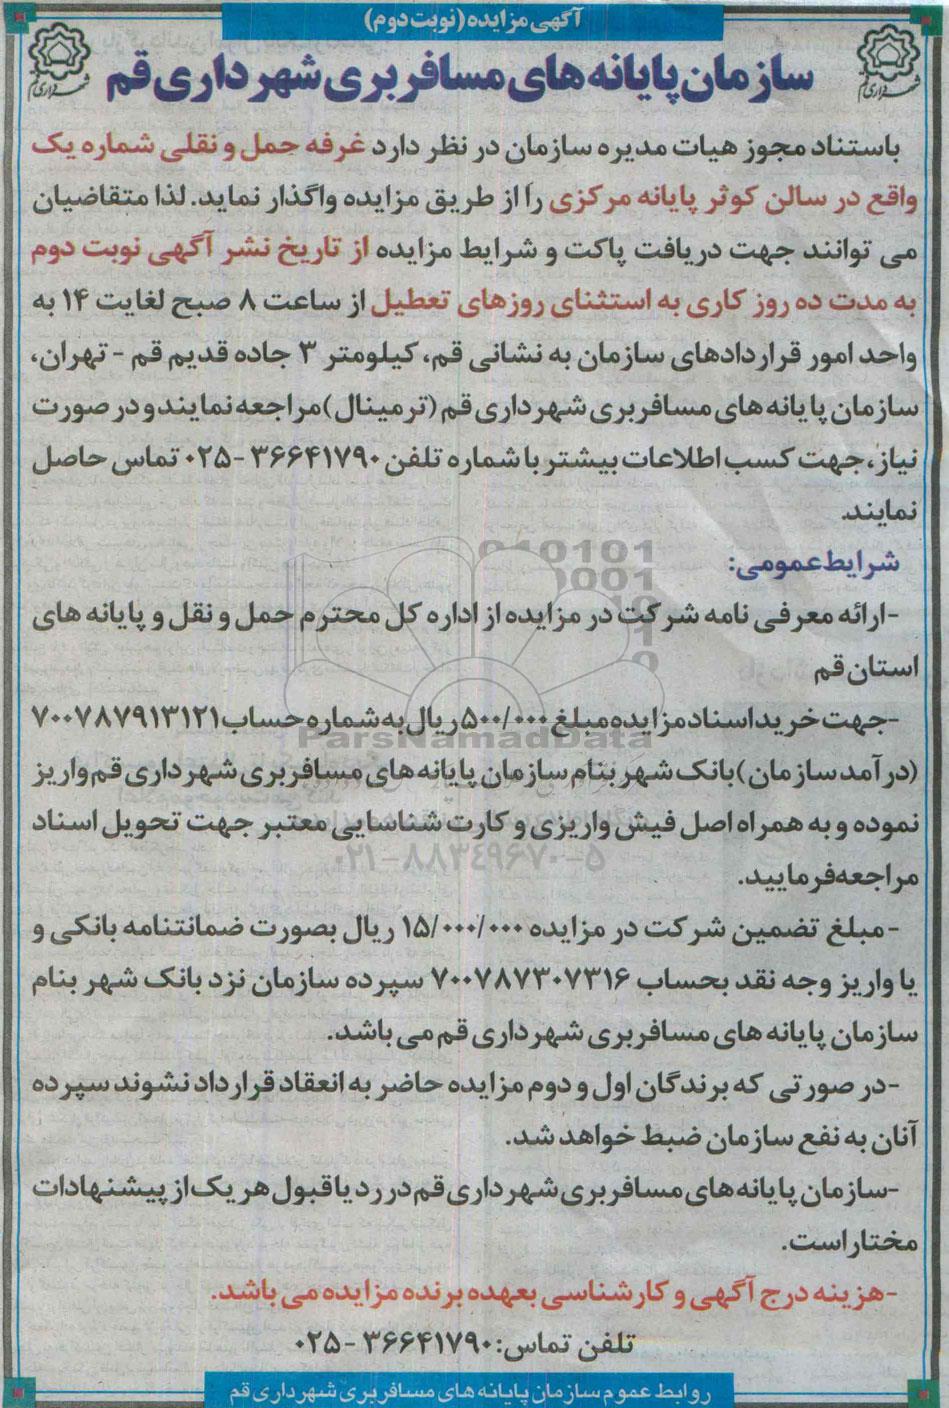 آگهی مزایده (نوبت دوم)
سازمان پایانه های مسافربری شهرداری قم
شهرداری قم
شهرداری قم
باستناد مجوز هیات مدیره سازمان در نظر دارد غرفه حمل و نقلی شماره یک
واقع در سالن کوثر پایانه مرکزی را از طریق مزایده واگذار نماید. لذا متقاضیان
می توانند جهت دریافت پاکت و شرایط مزایده از تاریخ نشر آگهی نوبت دوم
به مدت ده روز کاری به استثنای روزهای تعطیل از ساعت ۸ صبح لغایت ۱۴ به
واحد امور قراردادهای سازمان به نشانی قم، کیلومتر ۳ جاده قدیم قم - تهران،
سازمان پایانه های مسافربری شهرداری قم (ترمینال) مراجعه نمایند و در صورت
نیاز، جهت کسب اطلاعات بیشتر با شماره تلفن ۳۶۶۴۱۷۹۰ -۰۲۵ تماس حاصل
نمایند.
شرایط عمومی:
-ارائه معرفی نامه شرکت در مزایده از اداره کل محترم حمل و نقل و پایانه های
استان قم
-جهت خرید اسناد مزایده مبلغ ۵۰۰/۰۰۰ ریال به شماره حساب ۷۰۰۷۸۷۹۱۳۱۲۱
(درآمد سازمان) بانک شهر بنام سازمان پایانه های مسافربری شهرداری قم واریز
نموده و به همراه اصل فیش واریزی و کارت شناسایی معتبر جهت تحویل اسناد
مراجعه فرمایید.
-مبلغ تضمین شرکت در مزایده ۱۵/۰۰۰/۰۰۰ ریال بصورت ضمانتنامه بانکی و
یا واریز وجه نقد بحساب ۷۰۰۷۸۷۳۰۷۳۱۶ سپرده سازمان نزد بانک شهر بنام
سازمان پایانه های مسافربری شهرداری قم می باشد.
-در صورتی که برندگان اول و دوم مزایده حاضر به انعقاد قرارداد نشوند سپرده
آنان به نفع سازمان ضبط خواهد شد.
-سازمان پایانه های مسافربری شهرداری قم در رد یا قبول هر یک از پیشنهادات
مختار است.
-هزینه درج آگهی و کارشناسی بعهده برنده مزایده می باشد.
تلفن تماس: ۳۶۶۴۱۷۹۰ -۰۲۵
روابط عموم سازمان پایانه های مسافربری شهرداری قم
ParsNamadData
۰۲۱-۸۸۳۴۹۶۷۰-۵